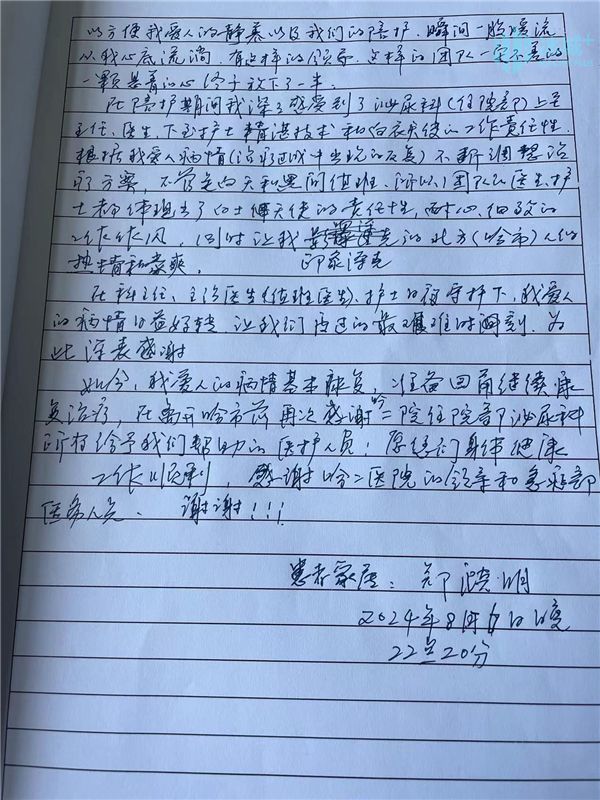 以方便我爱人的静养以及我们的陪护，瞬间一股暖流
从我心底流淌，有这样的领导，这样的团队一定不差的
一颗悬着的心终于放下了一半。
在陪护期间我深深感受到了泌尿科(住院部)上至
主任、医生、下至护士精湛技术和白衣天使的工作责任性，
根据我爱人病情(治疗过程中出现的反复)不断调整治
疗方案，不管是白天和黑间值班，团队医生、护
士都体现出了白士天使的责任性，耐心，细致的
工作作风，同时让我的北方(哈市)人的
热情和豪爽，印象深克
在科主任、主治医生(值班医生)、护士的守护下，我爱人
的病情日益好转，让我们度过的最难时刻，为
此深表感谢
如今，我爱人的病情基本康复，准备回甬继续康
复治疗，在离开哈市前再次感谢哈二院住院部泌尿科
所有给予我们帮助的医护人员，愿您们身体健康
工作顺利，感谢哈二医院的领导和急诊部
医务人员、谢谢！！！
患者家属：郑晓明
2024年8月日晚
22点20分